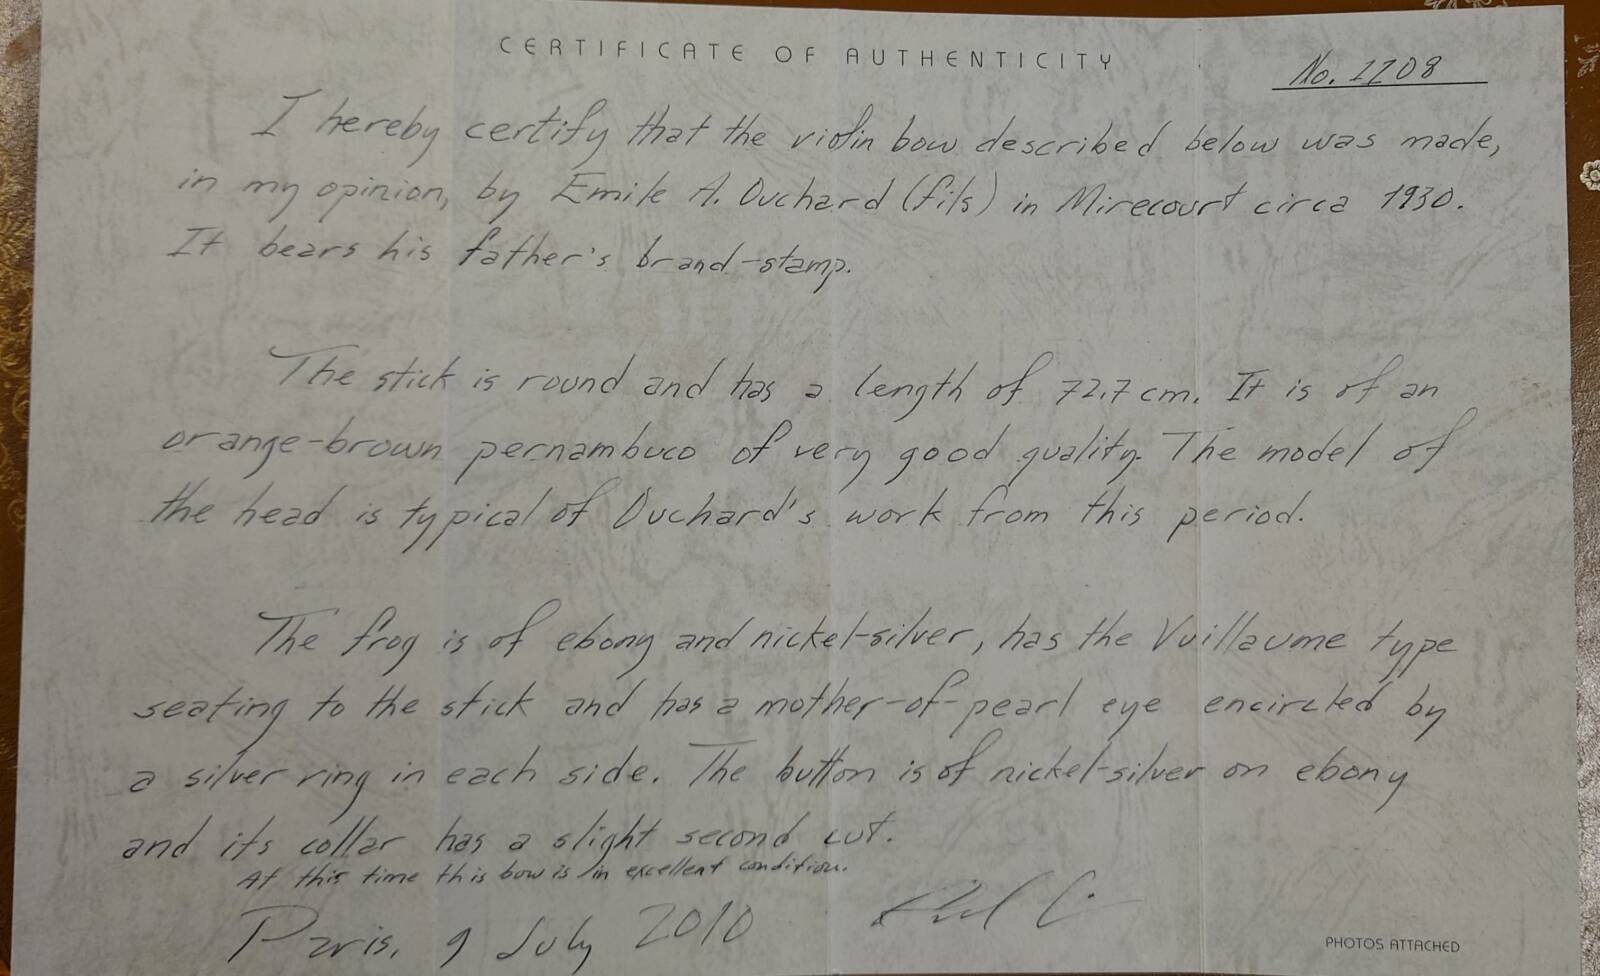 CERTIFICATE OF AUTHENTICITY
No. 1108
I hereby certify that the violin bow described below was made,
in my opinion, by Emile A. Ouchard (fils) in Mirecourt circa 1930.
It bears his father's brand-stamp.
The stick is round and has a length of 72,7 cm. It is of an
orange-brown pernambuco of very good quality. The model of
the head is typical of Ouchard's work from this period.
The frog is of ebony and nickel-silver, has the Vuillaume type
seating to the stick and has a mother-of-pearl eye encircled by
a silver ring in each side. The button is of nickel-silver on ebony
and its collar has a slight second cut.
At this time this bow is in excellent condition.
Paris, 9 July 2010
PHOTOS ATTACHED